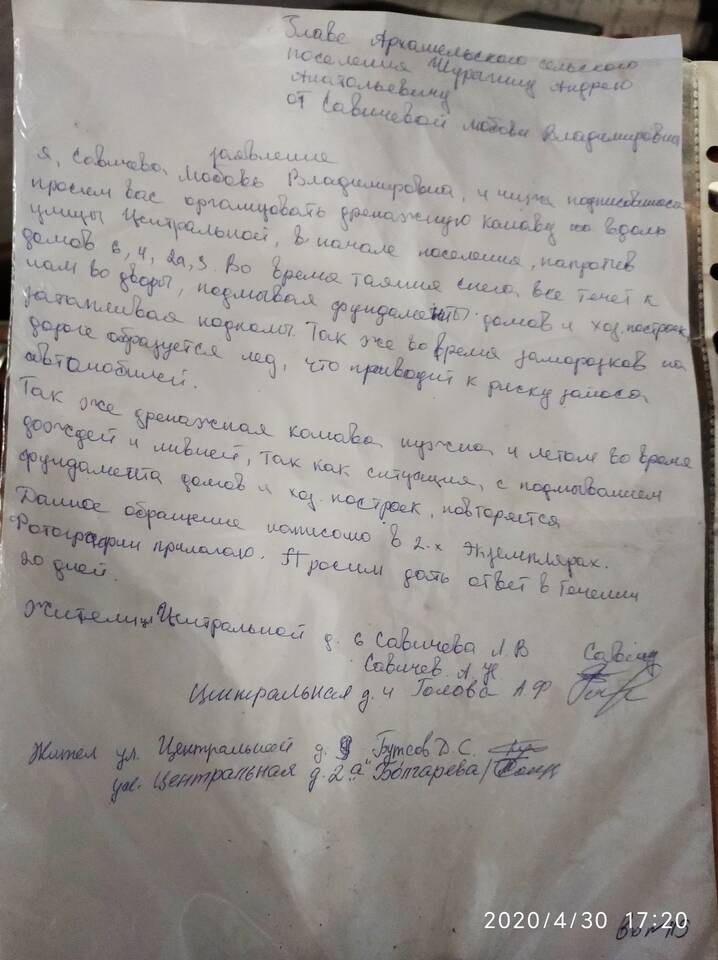 Главе Архангельского сельского
поселения Шурагину Андрею
Анатольевичу
от Савичевой Любови Владимировна
заявление
Я, Савичева Любовь Владимировна, и ниже подписавшиеся
просим вас организовать дренажную канаву по вдоль
улицы Центральной, в начале поселения, напротив
домов 6, 4, 2а, 3. Во время таяния снега все течет к
нам во дворы, подмывая фундаменты домов и хоз. построек,
затапливая подполы. Так же во время заморозков на
дороге образуется лед, что приводит к риску заноса
автомобилей.
Так же дренажная канава нужна и летом во время
дождей и ливней, так как ситуация, с подмыванием
фундамента домов и хоз. построек, повторяется
Данное обращение написано в 2-х экземплярах.
Фотографии прилагаю. Просим дать ответ в течении
20 дней.
Жители Центральной д. 6 Савичева Л.В
Савичев А.Н
Центральная д. 4 Голова А Ф
Жител ул. Центральной д. Бутсов Д.С.
ул. Центральная д. 2 "а" Болгарева
2020/4/30 17:20